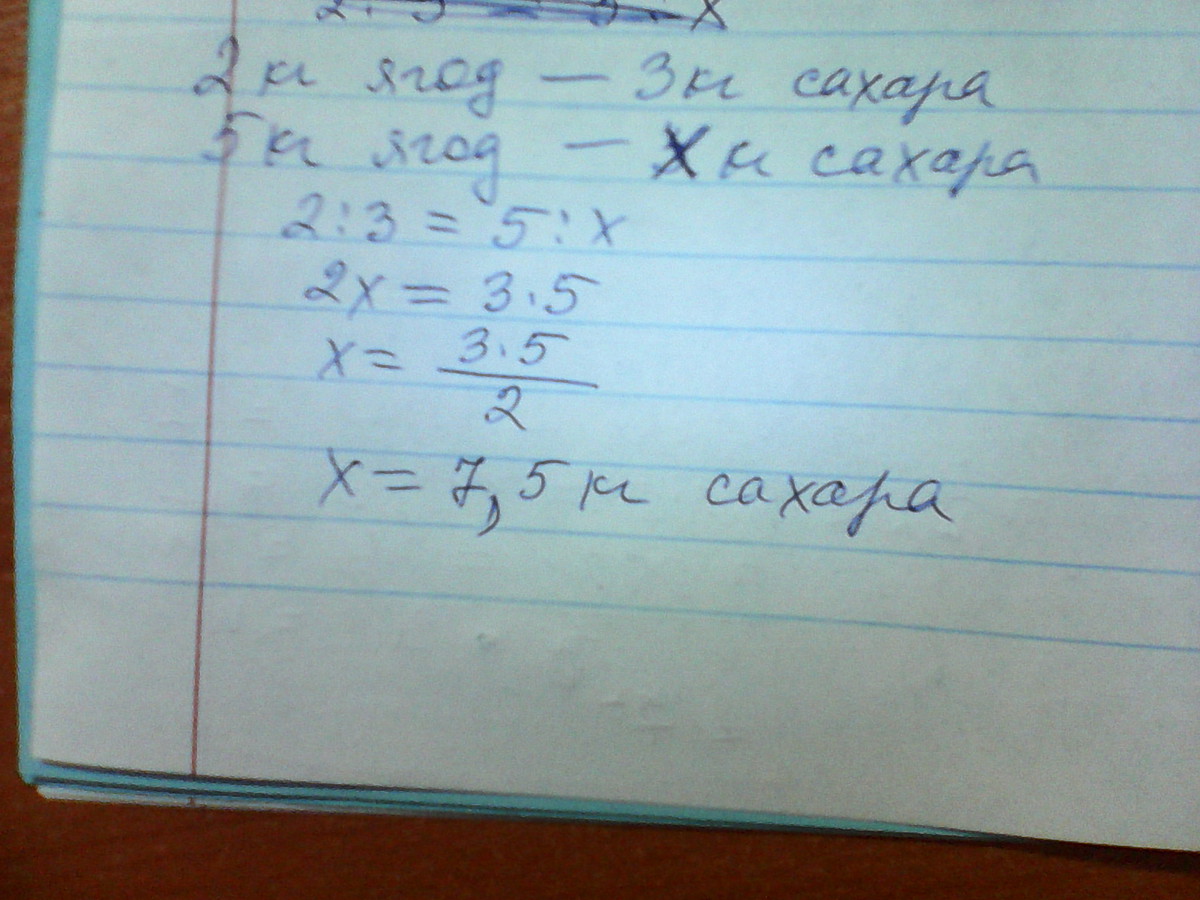 2 кг ягод — 3 кг сахара
5 кг ягод — x кг сахара
2:3 = 5:x
2x = 3·5
x = 3·5
2
x = 7,5 кг сахара